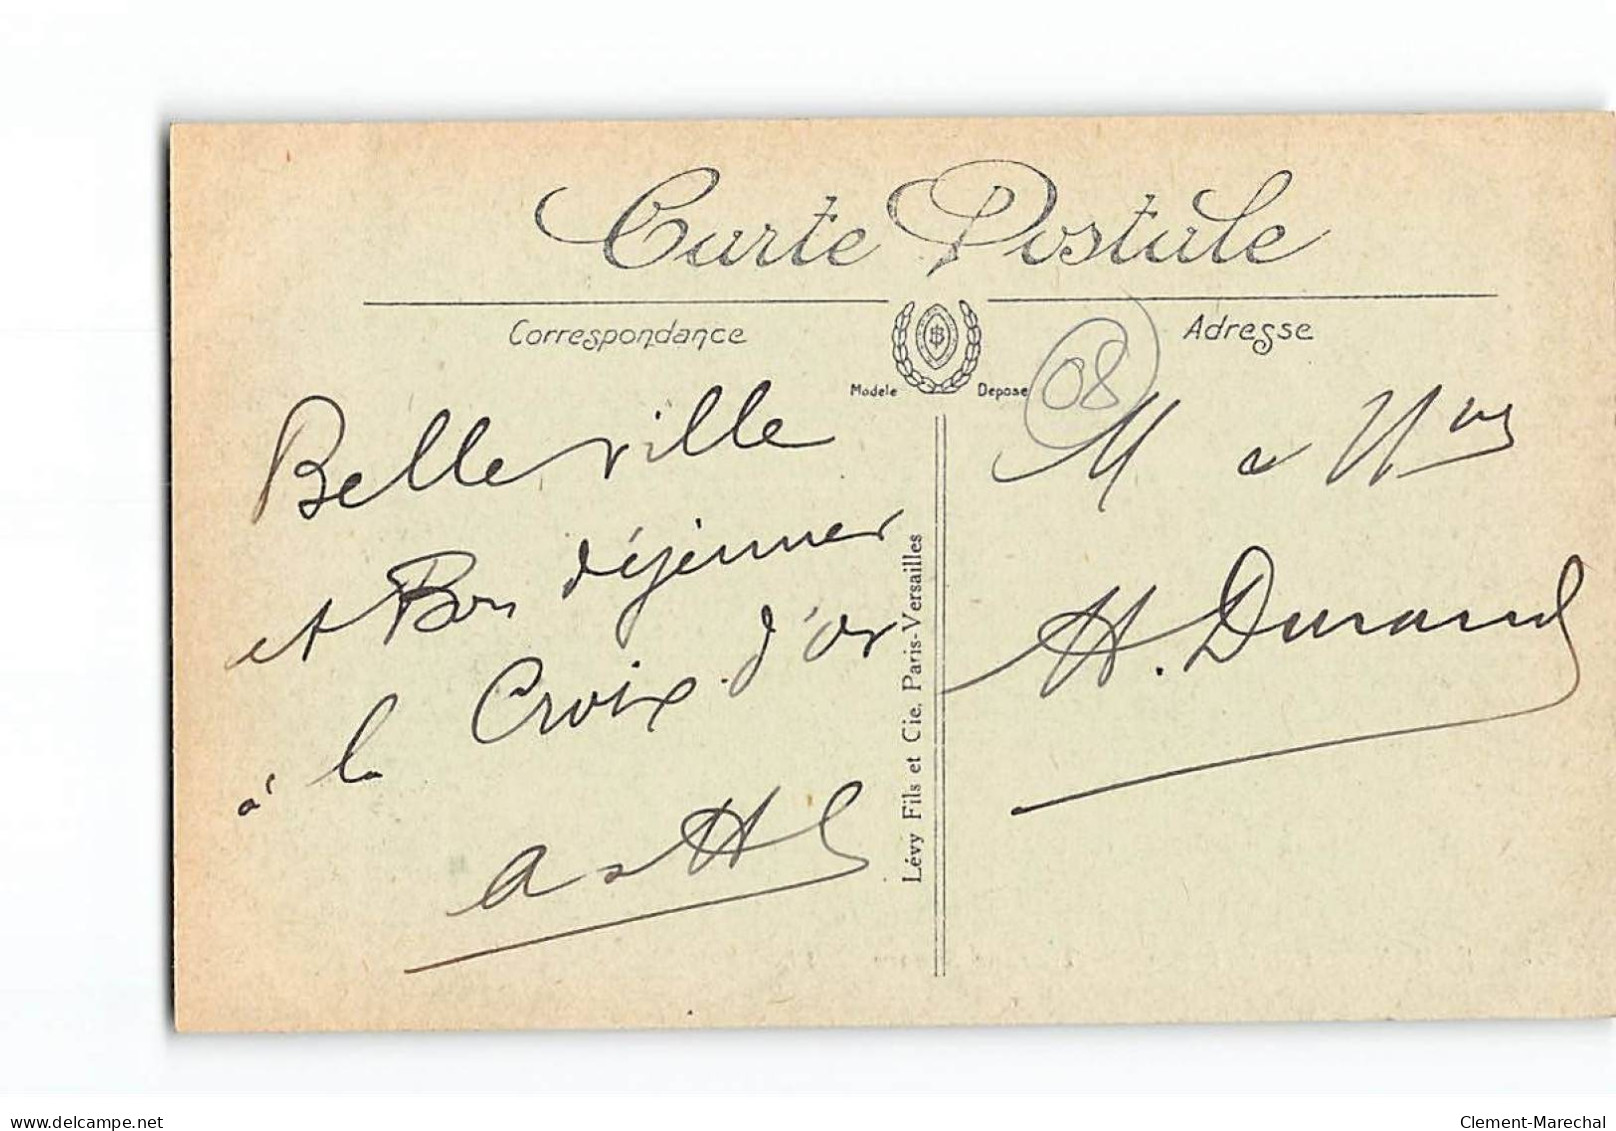 Carte Postale
Correspondance
Adresse
Modèle Déposé
08
Belleville
et Bon déjeuner
à la Croix d'or
Lévy Fils et Cie, Paris-Versailles
M
H. Durand
delcampe.net
Clement-Marechal